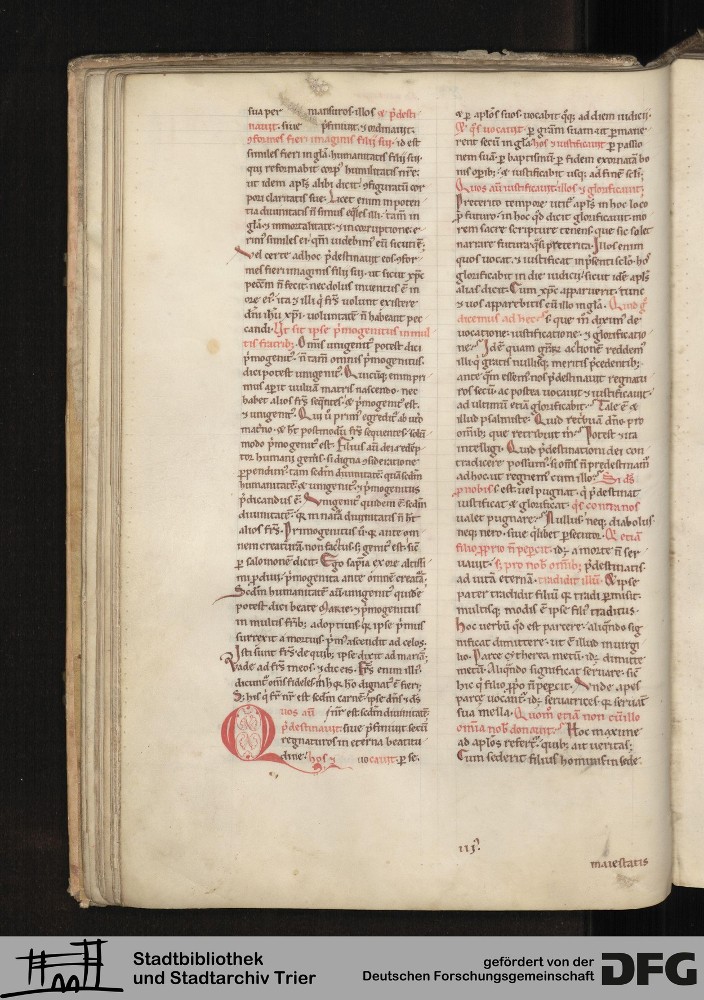 sua per mansuros. illos & p̄desti
nauit. siue p̄finiuit. & ordinauit.
ꝯformes fieri imaginis filij sui. id est
similes fieri in gl̄a humanitatis filij sui.
qui reformabit corp' humilitatis nr̄e.
ut idem apl̄s alibi dicit. ꝯfiguratū cor
pori claritatis sue. Licet enim in poten
tia diuinitatis n̄ simus eq̄les illi. tam̄ in
gl̄a. & immortalitate. & incorruptione. e
rim' similes ei. qm̄ uidebim' eū sicuti ē.
Vel certe ad hoc p̄destinauit eos ꝯfor
mes fieri imaginis filij sui. ut sicut xp̄c
peccm̄ n̄ fecit. nec dolus inuentus ē in
ore ei'. ita & illi q̄ fr̄s uolunt existere
dn̄i ih'u xp̄i. uoluntatē n̄ habeant pec
candi. Ut sit ipse p̄mogenitus in mul
tis fratrib;. Om̄is unigenit' potest dici
p̄mogenit'. n̄ tam̄ omnis p̄mogenitus
dici potest unigenit'. Quicūq; enim pri
mus aperit uuluā matris nascendo. nec
habet alios fr̄s seq̄ntes. & p̄mogenit' est.
& unigenit'. Qui ū prim' egredit' ab ute
materno. & ht̄ postmodū fr̄s sequentes. solū
modo p̄mogenit' est. Filius aū dei redēp
tor humani gen̄is. si digna ꝯsideratione
ꝑpendim'. tam scdm̄ diuinitatē. quā scdm̄
humanitatē. & unigenit'. & p̄mogenitus
p̄dicandus ē. Vnigenit' quidem ē scdm̄
diuinitatē. q̄ in natā diuinitatis n̄ ht̄
alios fr̄s. Primogenitus ū. q̄ ante om
nem creaturā non factus. s; genit' est. sic
ꝑ salomonē dicit. Ego sapīa ex ore altissi
mi p̄diui. p̄mogenita ante omnē creatā.
Scdm̄ humanitatē aū unigenit' quidē
potest dici beate Marie. & p̄mogenitus
in multis fr̄ib;. adoptiuis. q̄ ipse p̄mus
surrexit a mortuis. p̄m' ascendit ad celos.
Isti sunt fr̄s. de quib; ipse dixit ad mariā;
Vade ad fr̄s meos. & dic eis. Fr̄s enim illi'
dicunt' om̄s fideles. in h' q̄ h'o dignat' ē fieri;
S; his q̄ fr̄ nr̄ est scdm̄ carnē. ipse dn̄s & ds
nr̄ est. scdm̄ diuinitatē.
Quos aū
p̄destinauit. siue p̄finiuit secū
regnaturos in eterna beatitu
dine. hos & uocauit. ꝑ se.
& ꝑ apl̄os suos. uocabit q̄q; ad diem iudicij.
Et q̄s uocauit. ꝑ grām suam. ut ꝑmane
rent secū in gl̄a. hos & iustificauit. ꝑ passio
nem suā. ꝑ baptismū. ꝑ fidem exornatā bo
nis opib;. & iustificabit usq; ad finē sc̄li;
Quos aū iustificauit. illos & glorificauit;
Preterito tempore utit' apl̄s in hoc loco
ꝑ futuro. in hoc qd̄ dicit glorificauit. mo
rem sacre scripture tenens. que sic solet
narrare futura. q̄si preterita. Illos enim
quos uocat. & iustificat in p̄senti sclo. hos
glorificabit in die iudicij. sicut idē apl̄s
alias dicit. Cum xp̄c apparuerit. tunc
& uos apparebitis cū illo in gl̄a. Quid g̃
dicemus ad hec? s; que m̄ diximˀ de
uocatione. iustificatione. & glorificatio
ne? Idē quam gr̄ar; actionē reddem'
illi. q̄ gratis. nullisq; meritis p̄cedentib;.
ante qm̄ essem' nos p̄destinauit regnatu
ros secū. ac postea uocauit & iustificauit.
ad ultimū etiā glorificabit. Tale ē &
illud psalmiste. Quid retribuā dn̄o. pro
om̄ib; que retribuit m̄? Potest & ita
intelligi. Quid p̄destinationi dei con
tradicere possum'. si om̄s n̄ p̄destinam̄
ad hoc ut regnem' cum illo? Si ds̄
ꝓ nobis. s; est. uel pugnat. q̄ p̄destinat
iustificat & glorificat. q̄s contra nos
ualet pugnare? Nullus. neq; diabolus
neq; nero. siue q̄libet ꝑsecutor. Qi etiā
filio ꝓprio n̄ peꝑcit. idē a morte n̄ ser
uauit. s; pro nob' om̄ib; p̄destinatis.
ad uitā eternā. tradidit illū. & ipse
pater tradidit filiū. q̄ tradi ꝑmisit.
multisq; modis ē ipse fili' traditus.
Hoc uerbū qd̄ est parcere. aliq̄ndo sig
nificat dimittere. ut ē illud in uirgi
lio. Parce cytherea metū. idē dimitte
metū. Aliq̄ndo significat seruare. sic̄
hic q̄ filio ꝓp̄o n̄ peꝑcit. Vnde apes
parcę uocant'. idē seruatrices. q̄ seruāt
sua mella. Quom̄ etiā non cū illo
om̄ia nob' donauit? Hoc maxime
ad apl̄os refert'. quib; ait ueritas;
Cum sederit filius hominis in sede
iijˀ
maiestatis
Stadtbibliothek
und Stadtarchiv Trier
gefördert von der
Deutschen Forschungsgemeinschaft
DFG